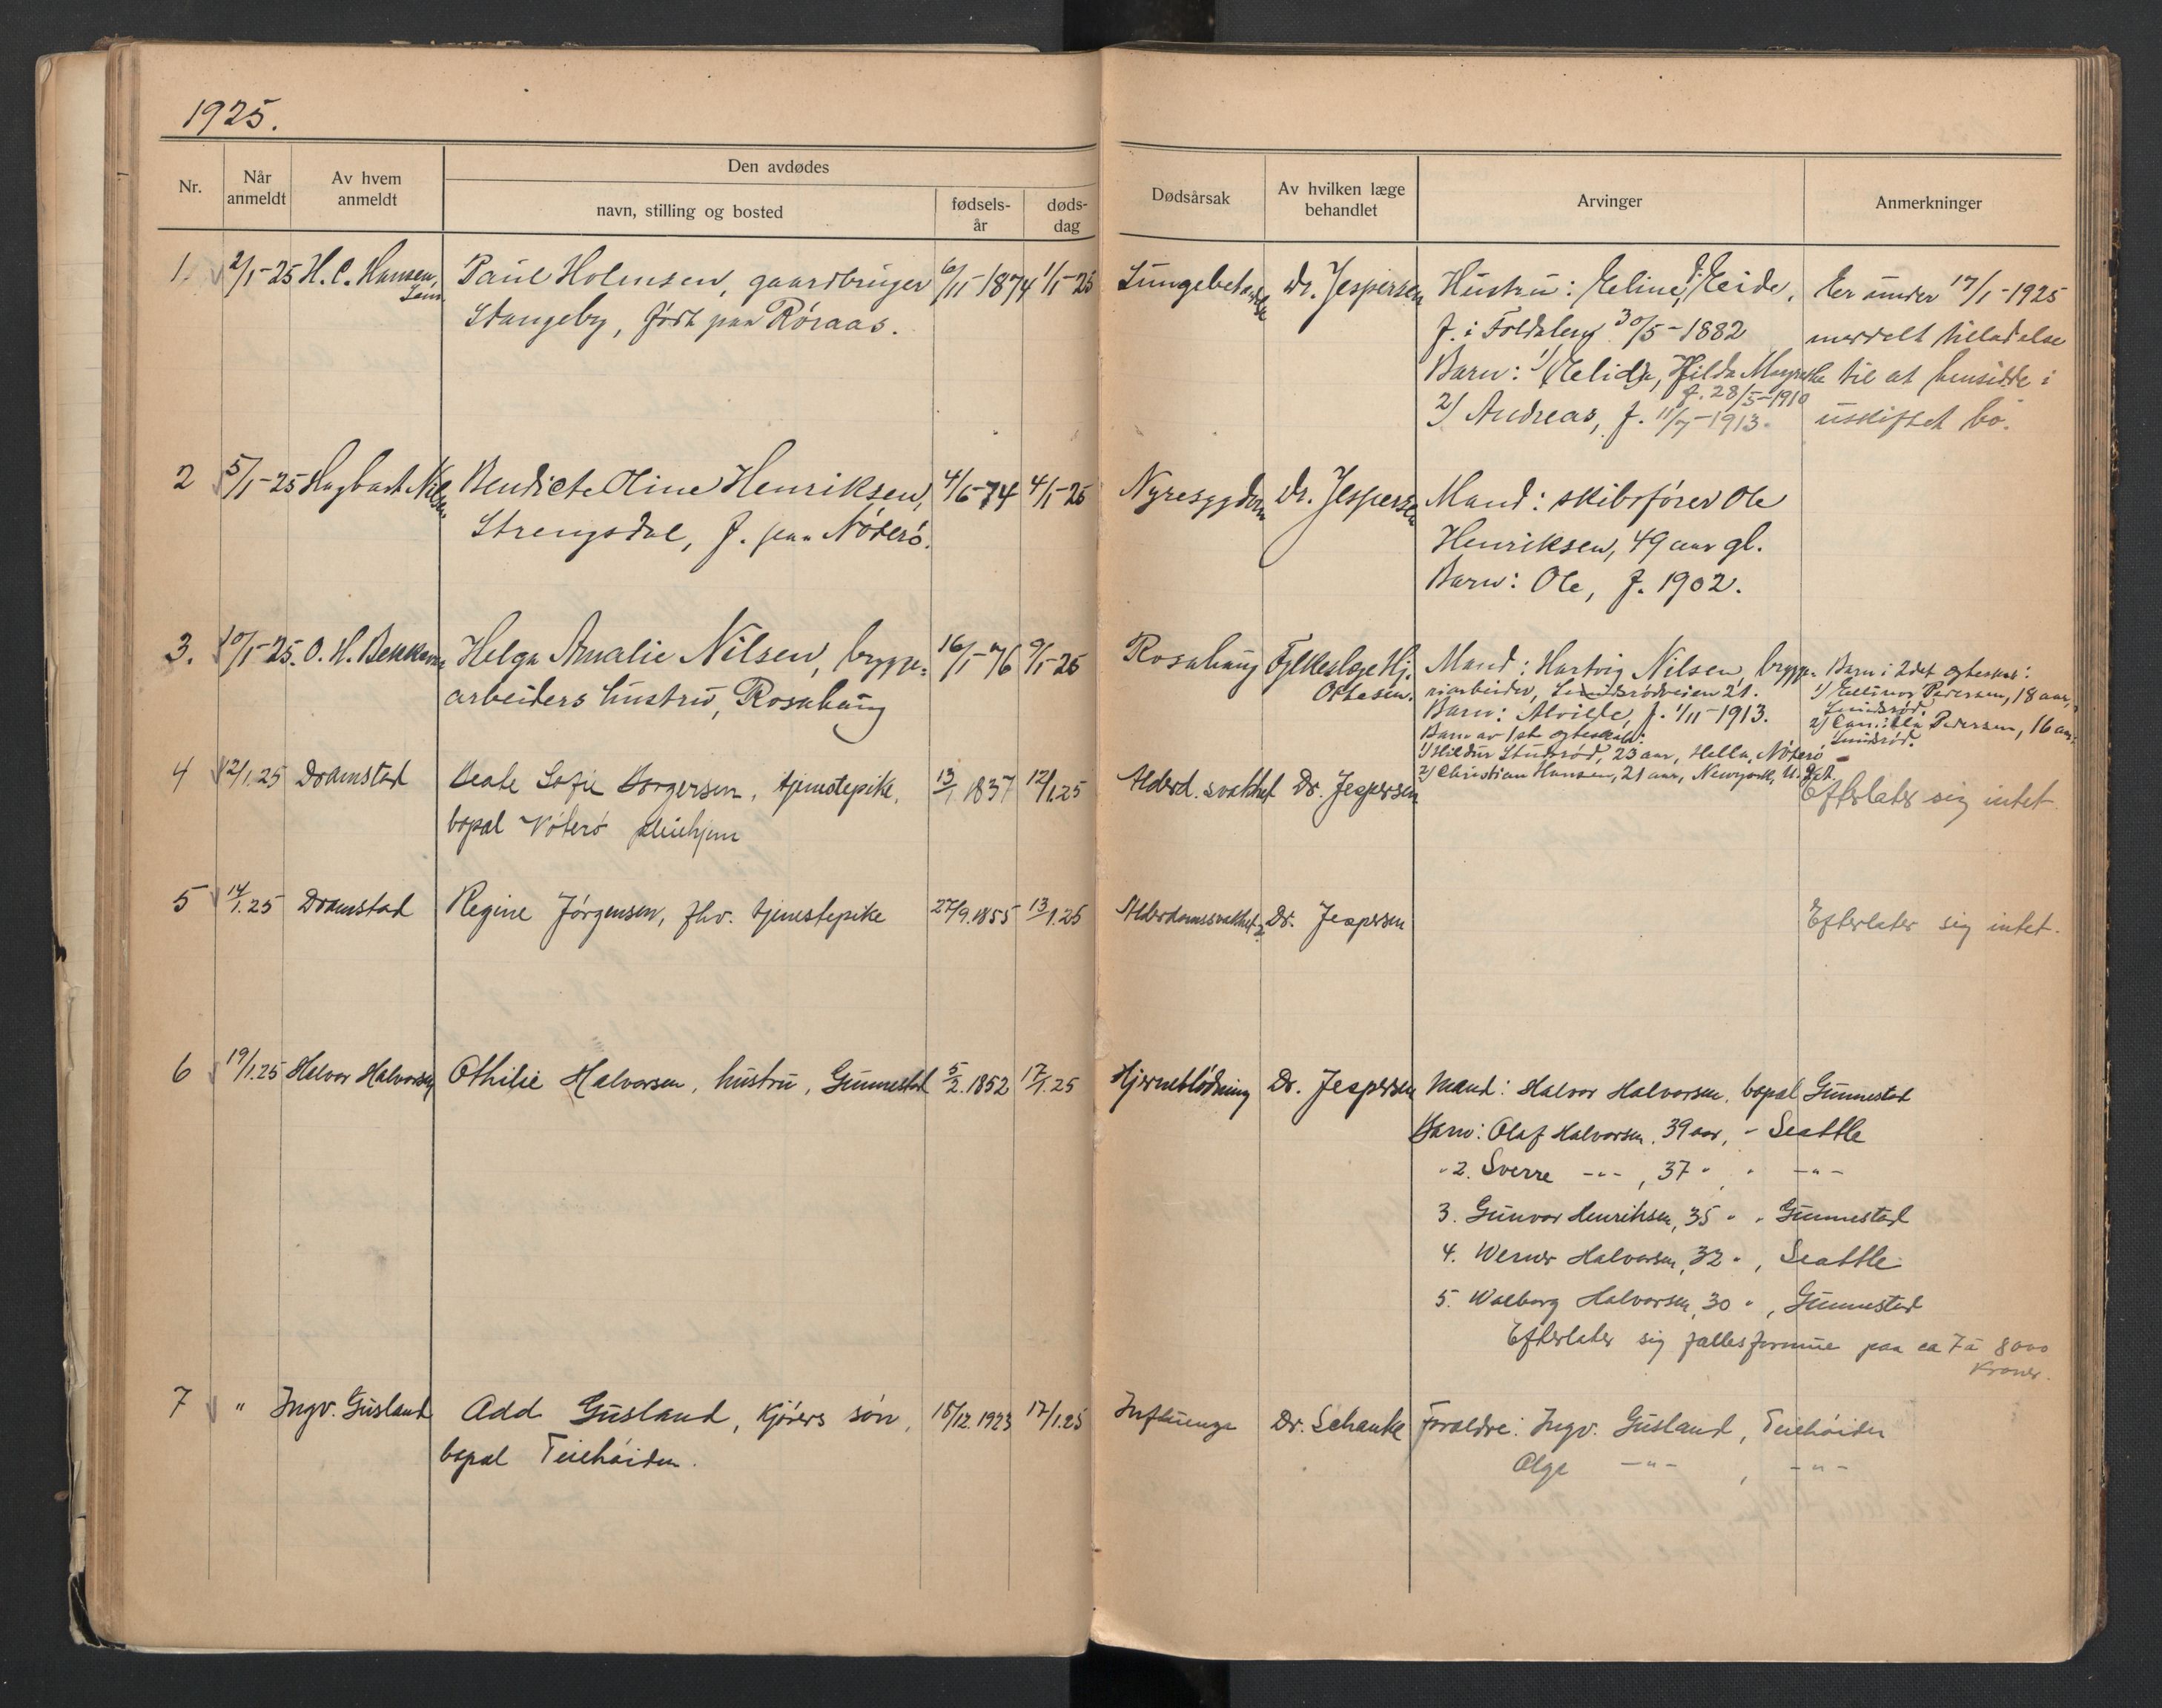 1925.
Nr.
Når anmeldt
Av hvem anmeldt
Den avdødes
navn, stilling og bosted
fødsels-år
døds-dag
Dødsårsak
Av hvilken læge behandlet
Arvinger
Anmerkninger
1. 2/1-25 H. C. Hansen, Paul Holmsen, gaardbruger 6/11-1874 1/1-25 Dr. Jespersen Hustru: Eline, f. Eide, Er under 17/1-1925
Stangeby, født paa Røraas. f. i Foldalen 30/5-1882 meddelt tilladelse
Barn: 1) Hilda til at hensidde i
f. 28/5-1910
2) Andreas, f. 11/7-1913. uskiftet bo.
2 5/1-25 Hagbart Nilsen Bendicte Oline Henriksen, 4/6-74 4/1-25 Nyresygdom Dr. Jespersen Mand: skibsfører Ole
Strengsdal, f. paa Nøterø. Henriksen, 49 aar gl.
Barn: Ole, f. 1902.
3. 10/1-25. O. H. Helga Amalie Nilsen, brygge- 16/1-76 9/1-25 Rosahaug Fylkeslæge Hj. Mand: Hartvig Nilsen, brygge- Barn i 2det egteskap:
arbeiders hustru, Rosahaug Ottesen. riarbeider, 21. 1) Ellinor Pedersen, 18 aar,
Barn: Alvilde, f. 1/11-1913. 2) Camilla Pedersen, 16 aar,
Barn av 1ste egteskap:
1) Hildur 23 aar, Hella, Nøterø
2) Christian Hansen, 21 aar, Newyork, U.S.A.
4 12/1.25 Dramstad Beate Sofie Borgersen, tjenestepike, 13/1.1837 12/1.25 Alderd. svakhet Dr. Jespersen Efterlater sig intet
bopæl Nøterø pleiehjem
5 14/1.25 Dramstad Regine Jørgensen, fhv. tjenestepike 27/9.1855 13/1.25 Alderdomssvakhet Dr. Jespersen Efterlater sig intet.
6 19/1.25 Halvor Halvorsen Othilie Halvorsen, hustru, Gunnestad 5/2.1852 17/1.25 Hjerneblødning Dr. Jespersen Mand: Halvor Halvorsen, bopæl Gunnestad
Barn: Olaf Halvorsen, 39 aar, - Seattle
" 2. Sverre -"-, 37 ", " -"-
3. Gunvor Henriksen, 35 " " Gunnestad
4. Werner Halvorsen, 32 ", Seattle
5. Walborg Halvorsen, 30 ", Gunnestad
Efterlater sig fællesformue paa ca 7 à 8000
kroner.
7 " Ingv. Gusland Odd Gusland, kjørers søn, 15/12.1923 17/1.25 Influenza Dr. Schanke Forældre: Ingv. Gusland, Teiehøiden
bopæl Teiehøiden. Olga -"-, -"-